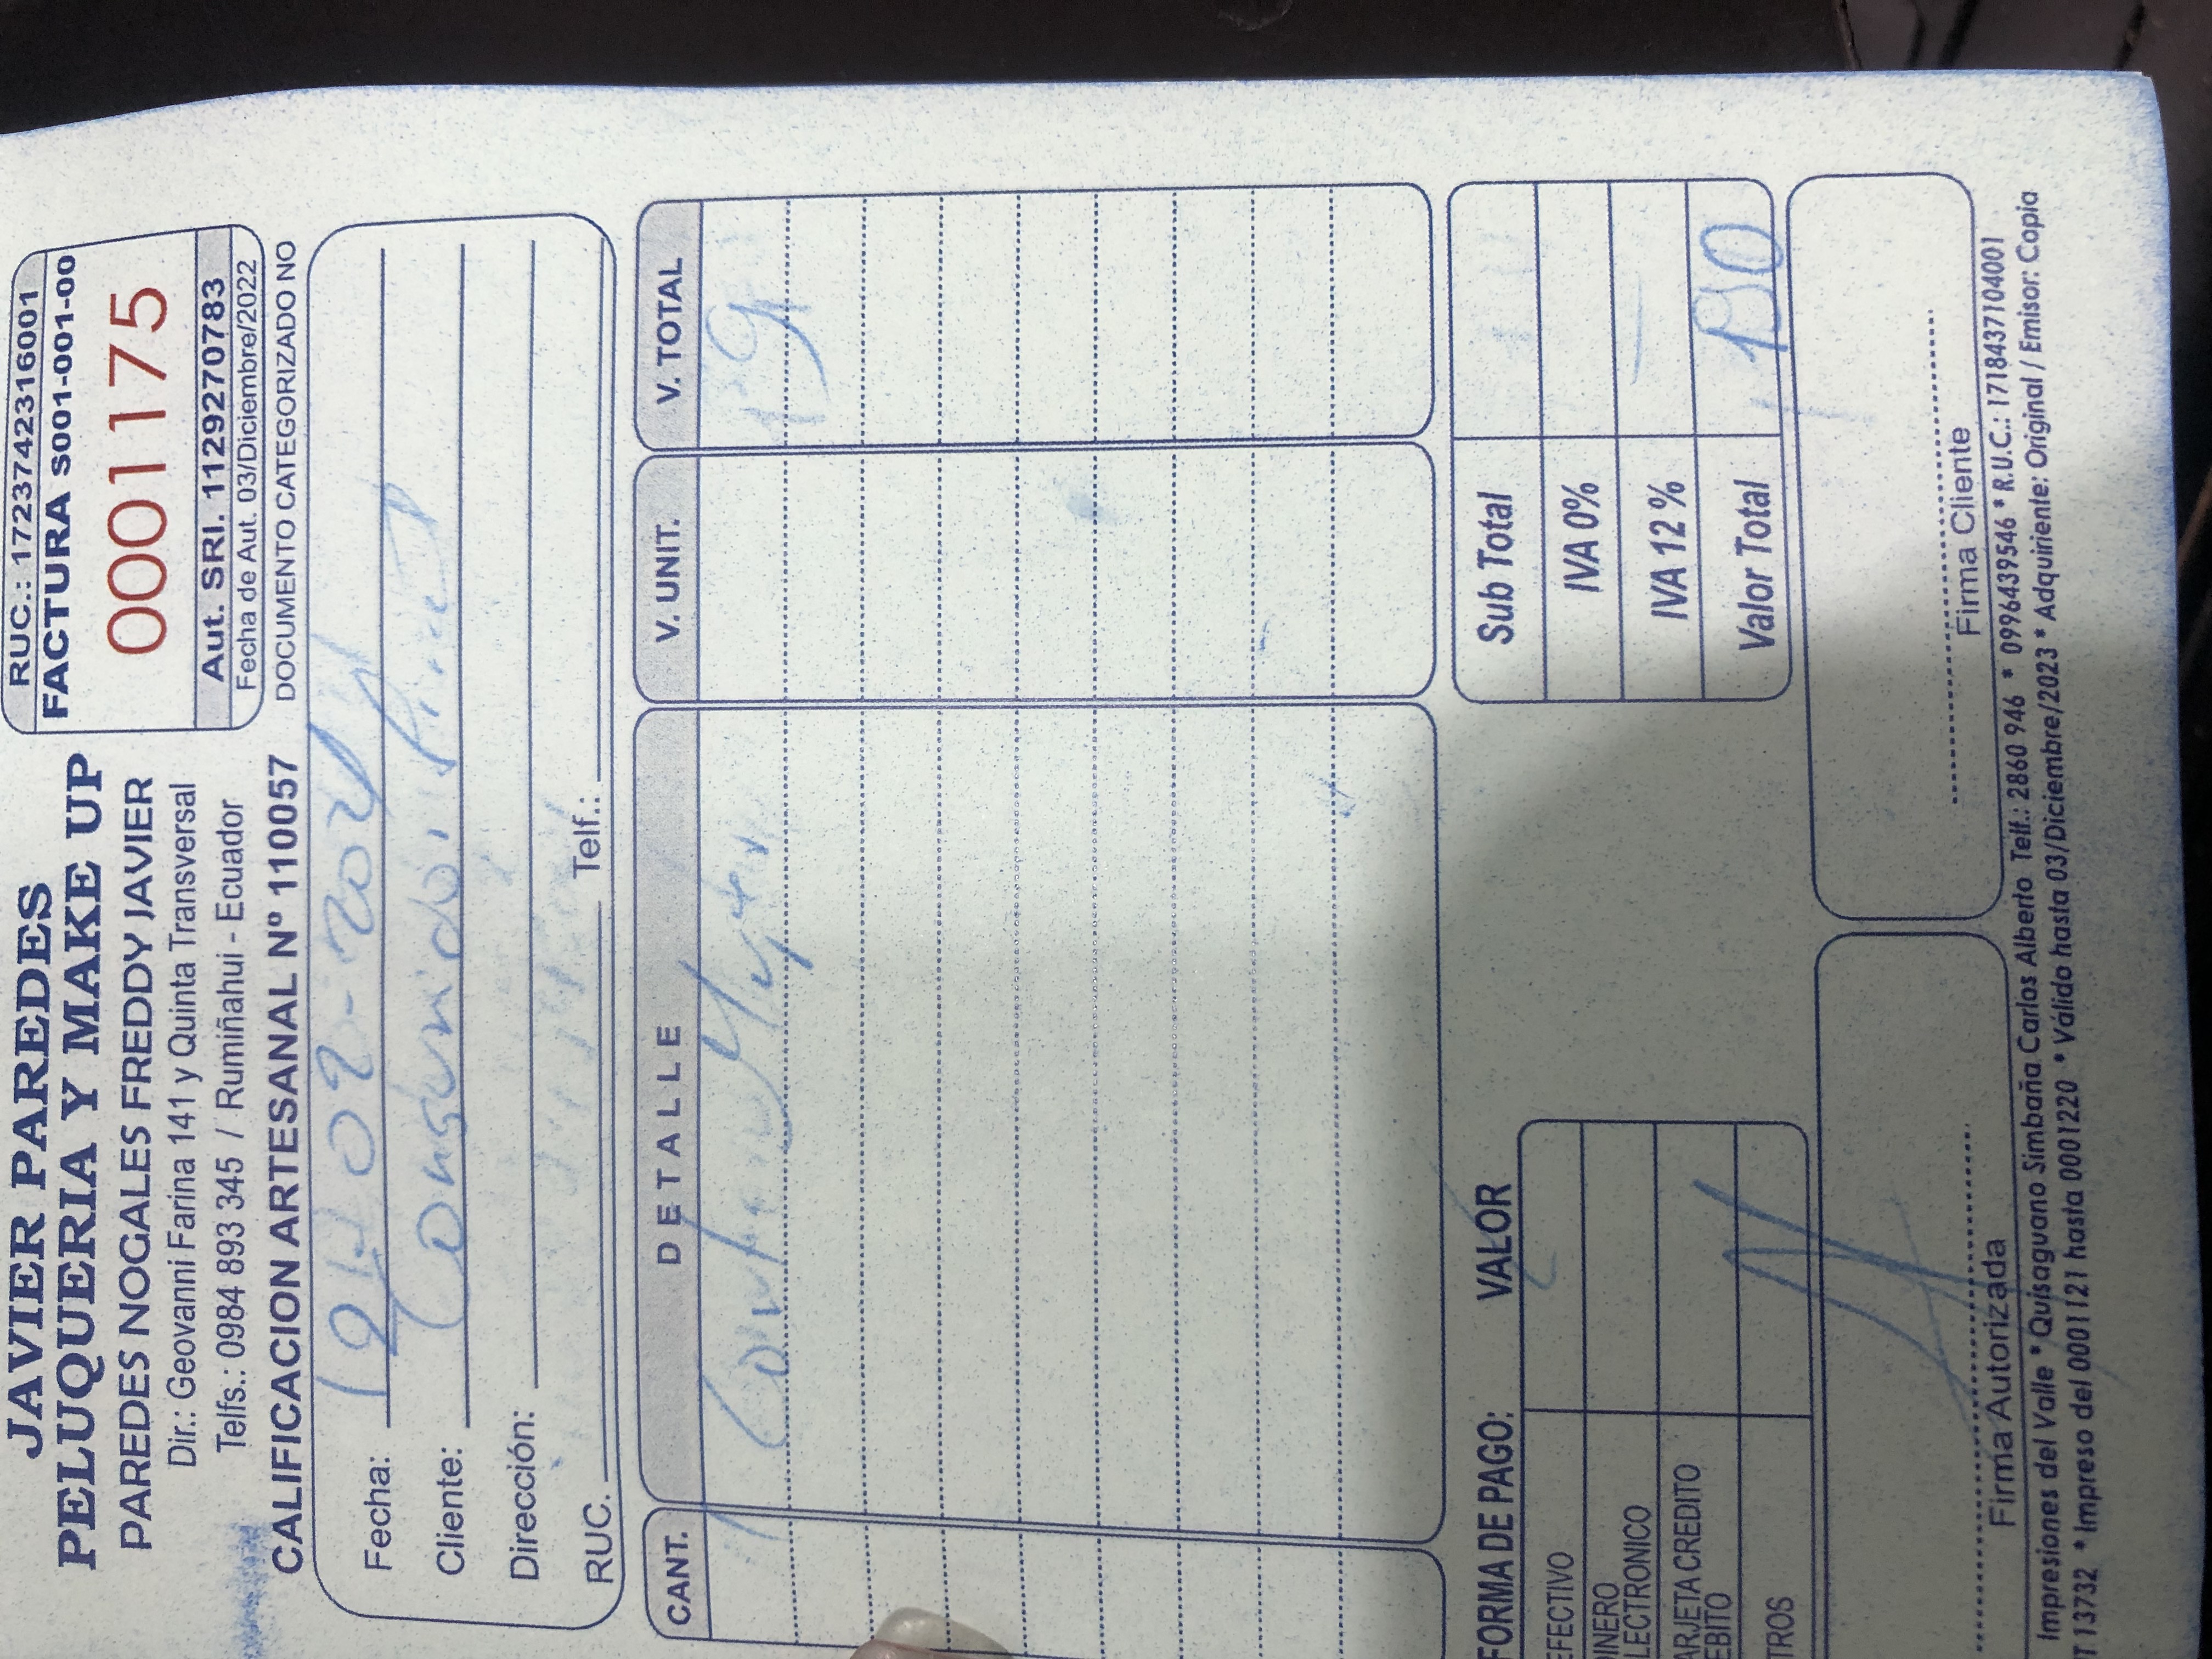 JAVIER PAREDES
PELUQUERIA Y MAKE UP
PAREDES NOGALES FREDDY JAVIER
Dir.: Geovanni Farina 141 y Quinta Transversal
Telfs.: 0984 893 345 / Rumiñahui - Ecuador
CALIFICACION ARTESANAL Nº 110057
RUC.: 1723742316001
FACTURA S001-001-00
0001175
Aut. SRI. 1129270783
Fecha de Aut. 03/Diciembre/2022
DOCUMENTO CATEGORIZADO NO
Fecha:
Cliente: Consumidor Final
Dirección:
RUC. Telf.:
CANT. DETALLE V. UNIT. V. TOTAL
1 Corte
FORMA DE PAGO: VALOR
EFECTIVO
DINERO
ELECTRONICO
TARJETA CREDITO
DEBITO
OTROS
Sub Total
IVA 0%
IVA 12 %
Valor Total
Firma Autorizada
Firma Cliente
Impresiones del Valle * Quisaguano Simbaña Carlos Alberto Telf.: 2860 946 * 0996439546 * R.U.C.: 1718437104001
T 13732 * Impreso del 0001121 hasta 0001220 * Válido hasta 03/Diciembre/2023 * Adquiriente: Original / Emisor: Copia